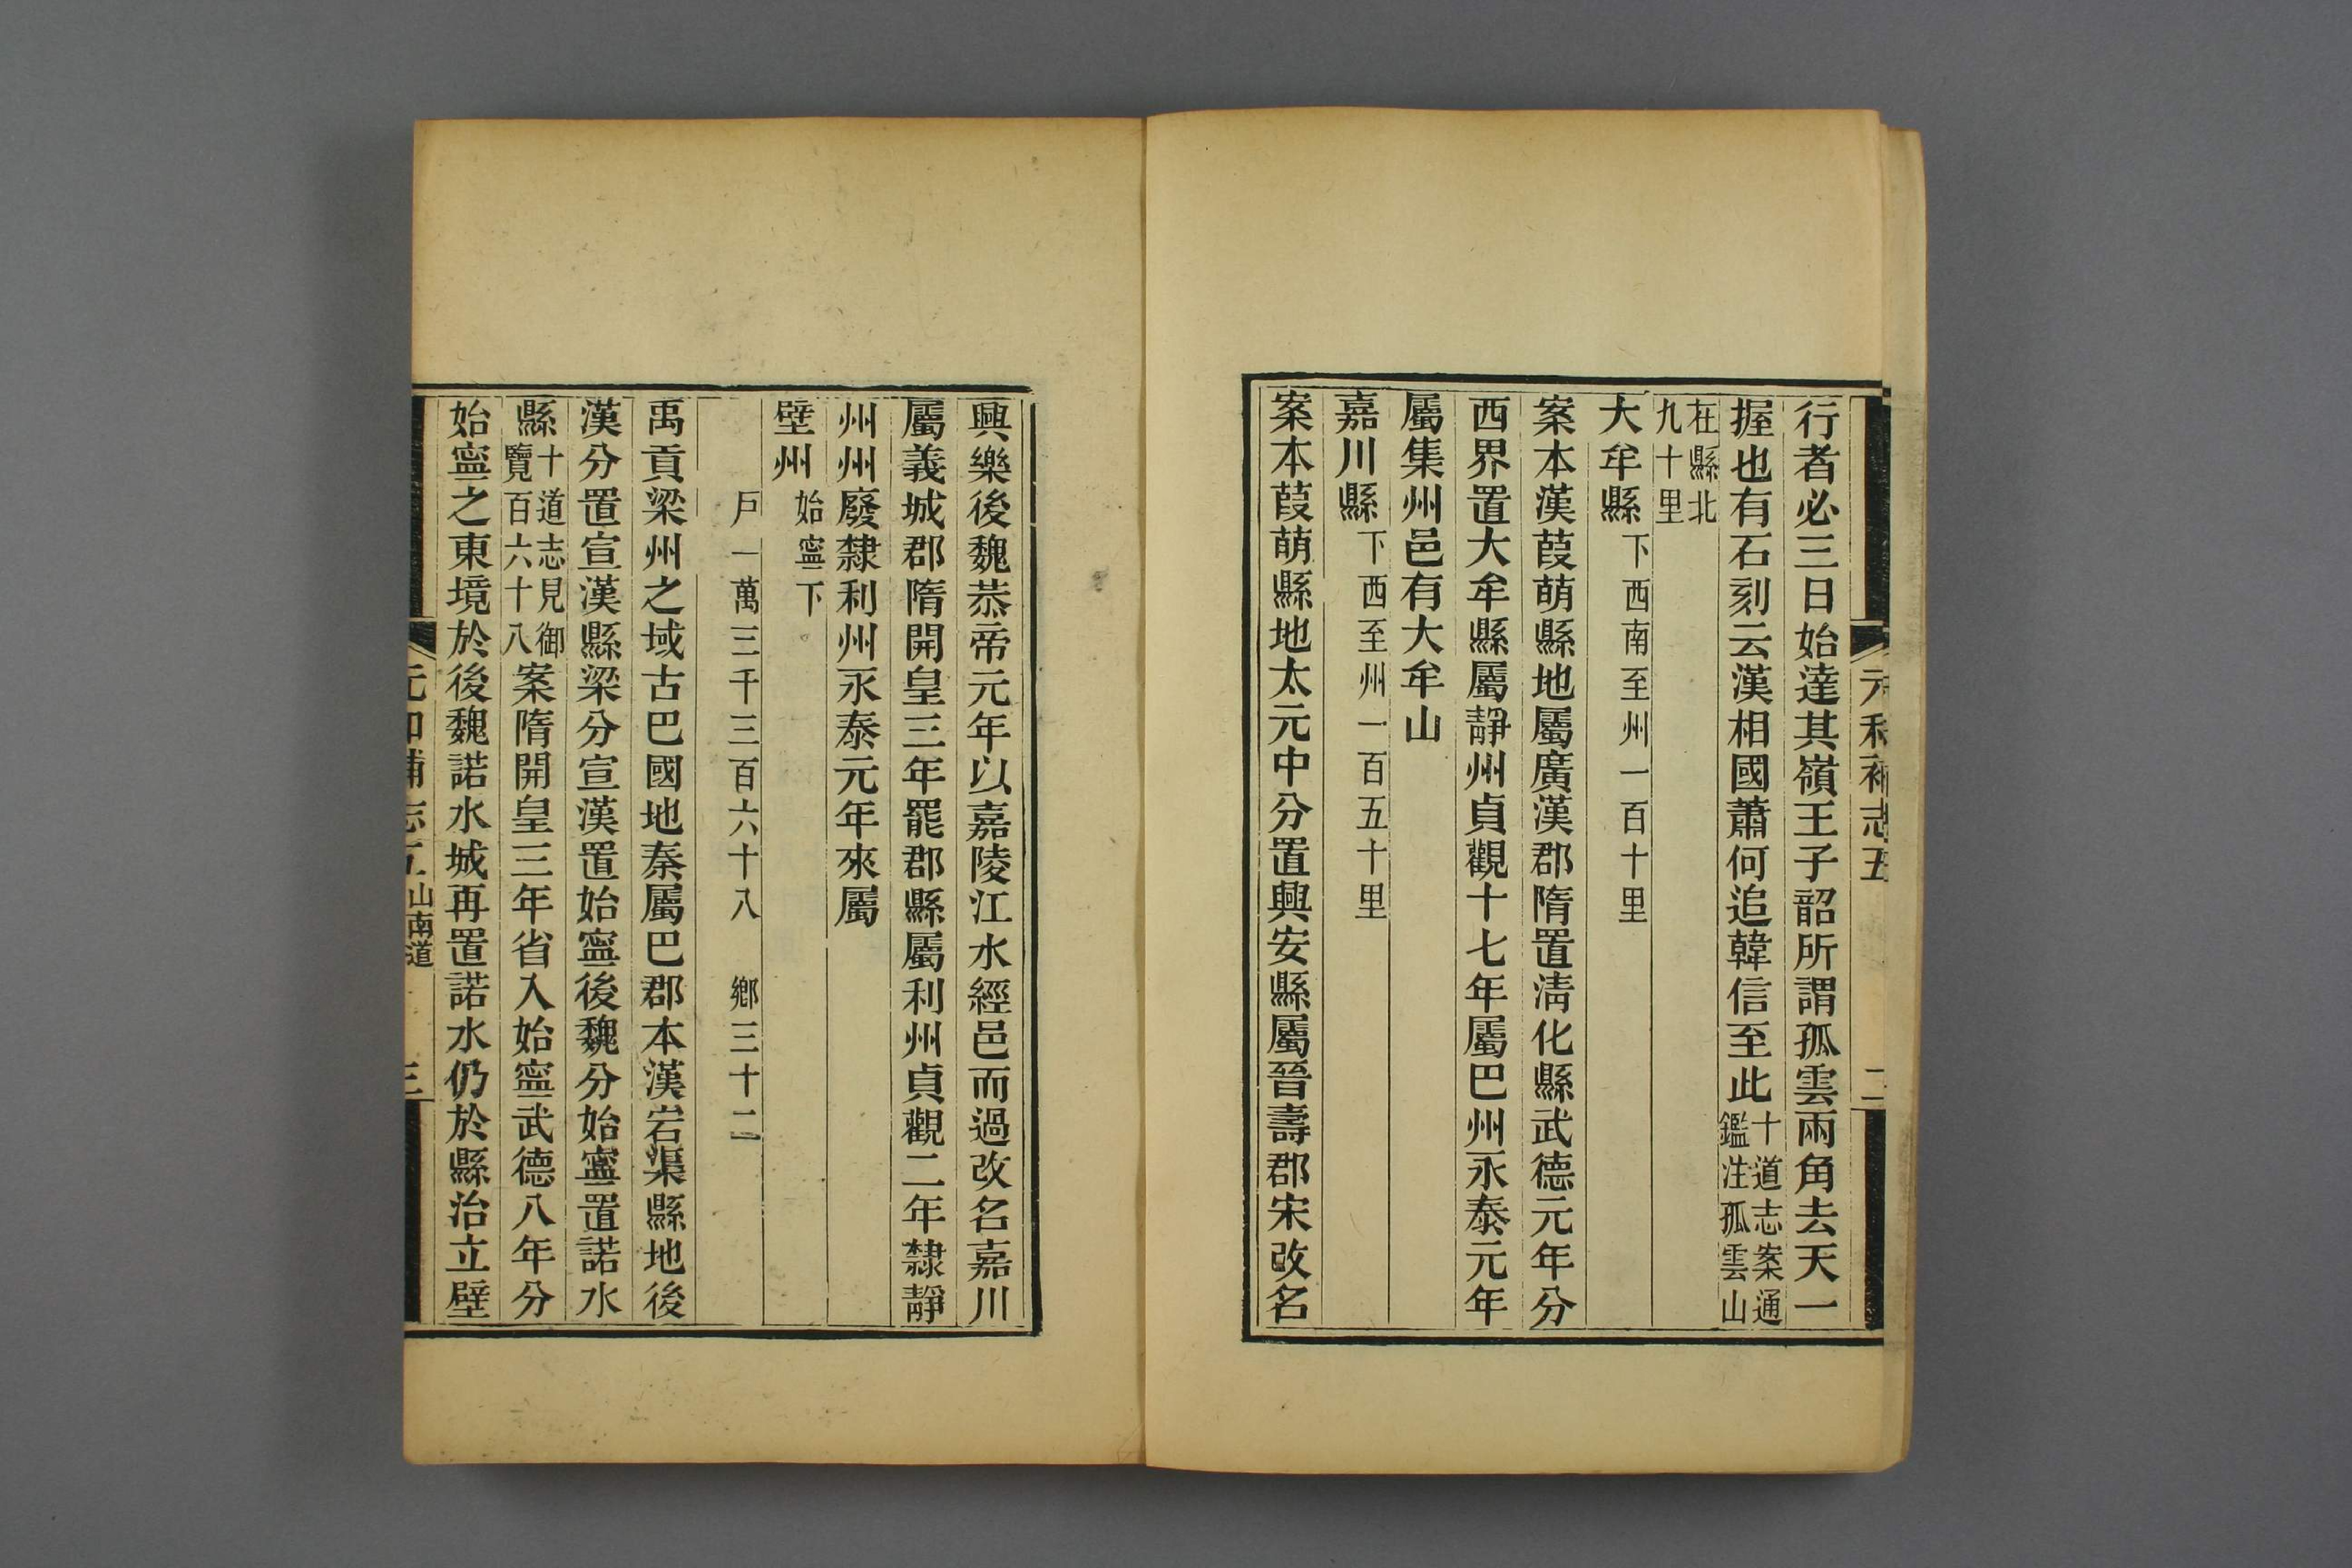 元和補志五 二
行者必三日始達其嶺王子韶所謂孤雲兩角去天一
握也有石刻云漢相國蕭何追韓信至此十道志案通
鑑注孤雲山
在縣北
九十里
大牟縣下西南至州一百十里
案本漢葭萌縣地屬廣漢郡隋置淸化縣武德元年分
西界置大牟縣屬靜州貞觀十七年屬巴州永泰元年
屬集州邑有大牟山
嘉川縣下西至州一百五十里
案本葭萌縣地太元中分置興安縣屬晉壽郡宋改名
興樂後魏恭帝元年以嘉陵江水經邑而過改名嘉川
屬義城郡隋開皇三年罷郡縣屬利州貞觀二年隸靜
州州廢隸利州永泰元年來屬
壁州始寧下
戶一萬三千三百六十八 鄉三十二
禹貢梁州之域古巴國地秦屬巴郡本漢岩渠縣地後
漢分置宣漢縣梁分宣漢置始寧後魏分始寧置諾水
縣十道志見御
覽百六十八案隋開皇三年省入始寧武德八年分
始寧之東境於後魏諾水城再置諾水仍於縣治立壁
元和補志五 山南道 三